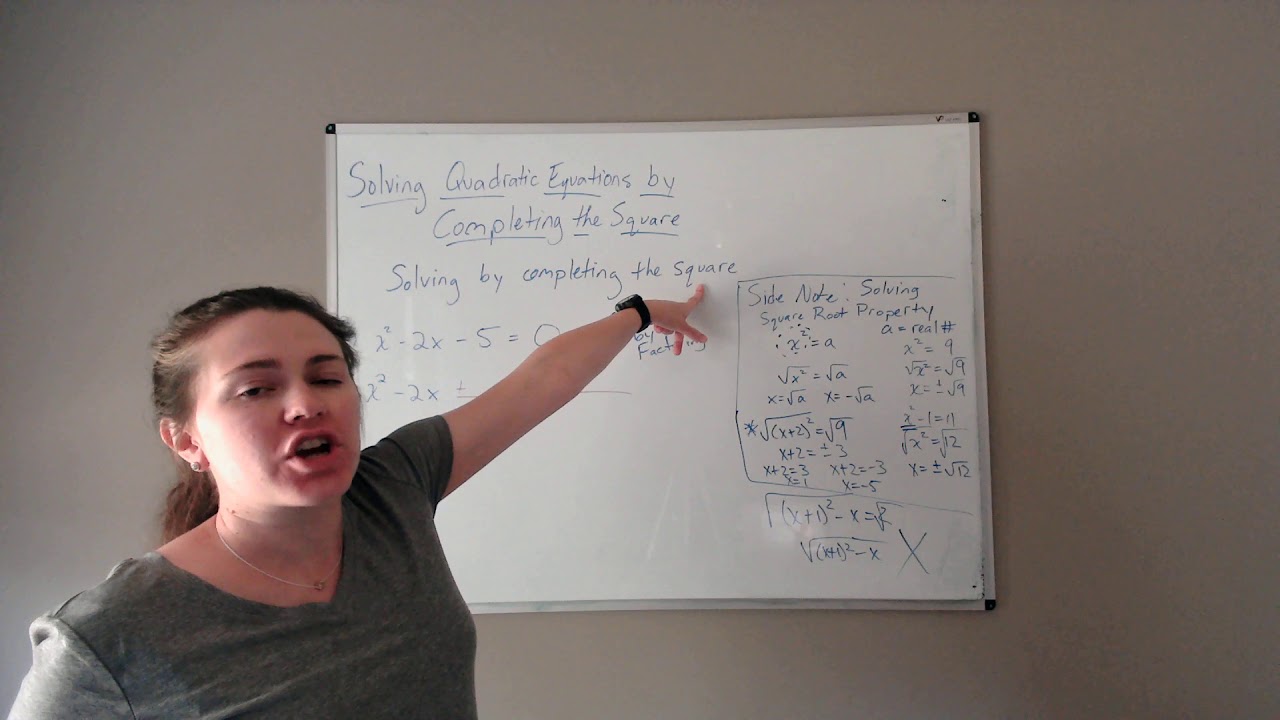 Solving Quadratic Equations by
Completing the Square
Solving by completing the square
x² - 2x - 5 = 0
by
x² - 2x ±
Side Note: Solving
Square Root Property
x² = a
√x² = √a
x = √a x = -√a
* √(x+2)² = √9
x+2 = ± 3
x+2 = 3 x+2 = -3
x = 1 x = -5
a = real #
x² = 9
√x² = √9
x = ± √9
x² - 1 = 11
√x² = √12
x = ± √12
√(x+1)² - x = √2
√(x+1)² - x X